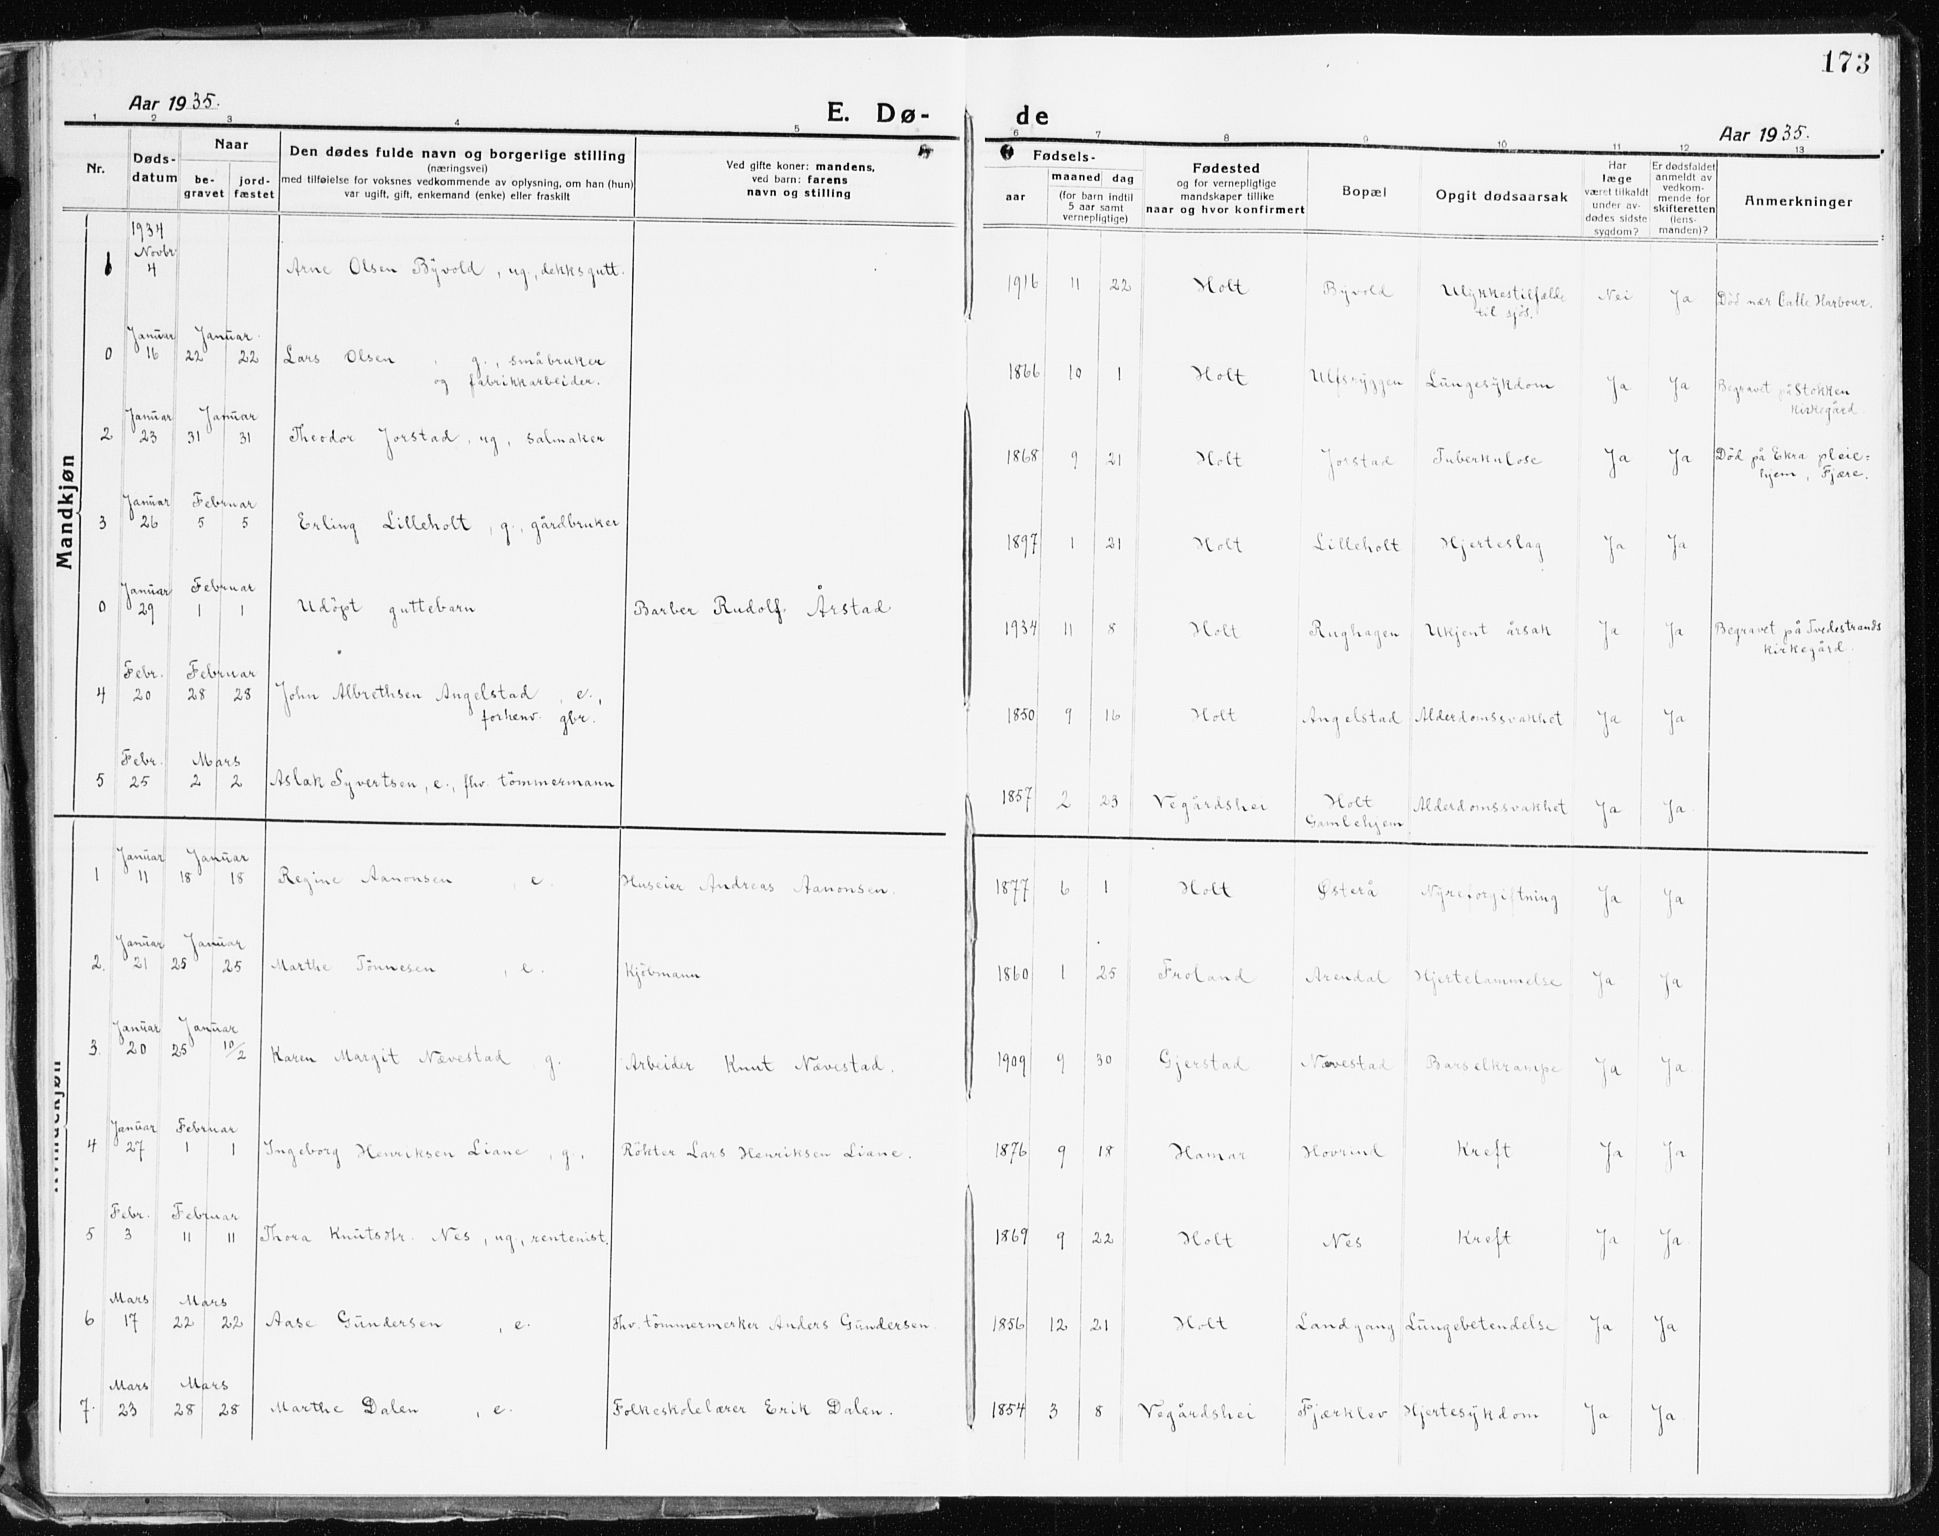 173
Aar 1935.
E. Dø-
de
Aar 1935.
1 2 3 4 5 6 7 8 9 10 11 12 13
Nr.
Døds-
datum
Naar
be-
gravet
jord-
fæstet
Den dødes fulde navn og borgerlige stilling
(næringsvei)
med tilføielse for voksnes vedkommende av oplysning, om han (hun)
var ugift, gift, enkemand (enke) eller fraskilt
Ved gifte koner: mandens,
ved barn: farens
navn og stilling
Fødsels-
aar
maaned dag
(for barn indtil
5 aar samt
vernepligtige)
Fødested
og for vernepligtige
mandskaper tillike
naar og hvor konfirmert
Bopæl
Opgit dødsaarsak
Har
læge
været tilkaldt
under av-
dødes sidste
sygdom?
Er dødsfaldet
anmeldt av
vedkom-
mende for
skifteretten
(lens-
manden)?
Anmerkninger
Mandkjøn
1934
Novbr.
1 4 Arne Olsen Byvold, ug., dekksgutt. 1916 11 22 Holt Byvold Ulykkestilfælde Nei Ja Død nær Calle Harbour.
til sjøs.
Januar Januar
0 16 22 22 Lars Olsen, g., småbruker 1866 10 1 Holt Ulfsryggen Lungesykdom Ja Ja Begravet på Stokken
og fabrikkarbeider. kirkegård.
Januar Januar
2 23 31 31 Theodor Jorstad, ug, salmaker 1868 9 21 Holt Jorstad Tuberkulose Ja Ja Død på Ekra pleie-
hjem, Fjære.
Januar Februar
3 26 5 5 Erling Lilleholt, g., gårdbruker 1897 1 21 Holt Lilleholt Hjerteslag Ja Ja
Januar Februar
0 29 1 1 Udöpt guttebarn Barber Rudolf Årstad 1934 11 8 Holt Rughagen Ukjent årsak Ja Ja Begravet på Tvedestrands
kirkegård.
Febr. Februar
4 20 28 28 John Albrethsen Angelstad, e., 1850 9 16 Holt Angelstad Alderdomssvakhet Ja Ja
forhenv. gbr.
Febr. Mars
5 25 2 2 Aslak Syvertsen, e., fhv. tömmermann 1857 2 23 Vegårdshei Holt Alderdomssvakhet Ja Ja
Gamlehjem
Kvindekjøn
Januar Januar
1 11 18 18 Regine Aanonsen, e. Huseier Andreas Aanonsen. 1877 6 1 Holt Østerå Nyreforgiftning Ja Ja
Januar Januar
2. 21 25 25 Marthe Tönnesen, e. Kjöbmann 1860 1 25 Froland Arendal Hjertelammelse Ja Ja
Januar Januar
3. 20 25 10/2 Karen Margit Nævestad, g. Arbeider Knut Nævestad. 1909 9 30 Gjerstad Nævestad Barselkrampe Ja Ja
Januar Februar
4 27 1 1 Ingeborg Henriksen Liane, g. Rökter Lars Henriksen Liane. 1876 9 18 Hamar Hovrind Kreft Ja Ja
Febr. Februar
5 3 11 11 Thora Knutsdtr. Nes, ug., rentenist. 1869 9 22 Holt Nes Kreft Ja Ja
Mars Mars
6 17 22 22 Aase Gundersen, e. Fhv. tömmermerker Anders Gundersen. 1856 12 21 Holt Landgang Lungebetendelse Ja Ja
Mars Mars
7. 23 28 28 Marthe Dalen, e. Folkeskolelærer Erik Dalen. 1854 3 8 Vegårdshei Fjærklev Hjertesykdom Ja Ja